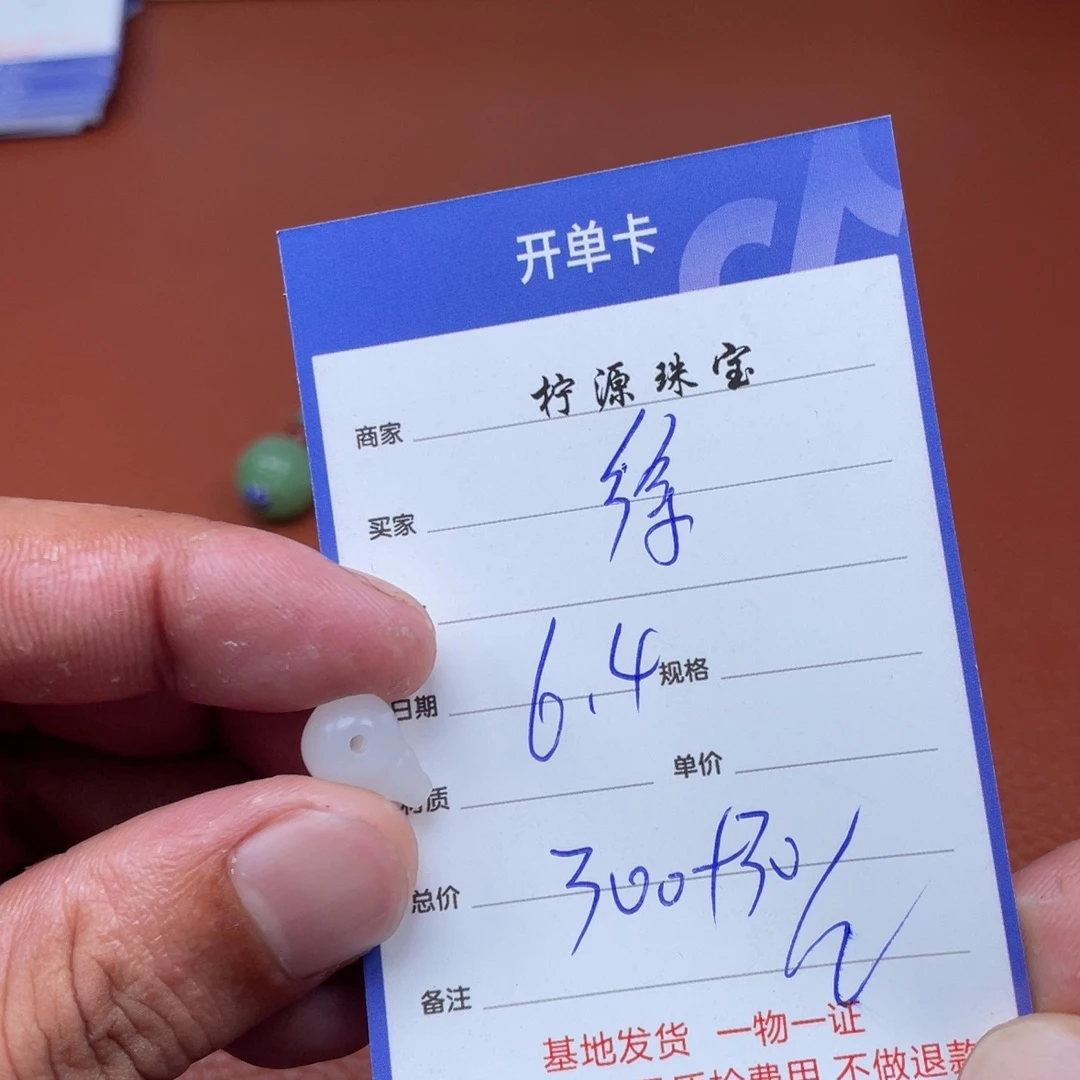 开单卡
商家 柠源珠宝
买家 徐
日期 6.4 规格
材质 单价
总价 300+30/
备注
基地发货 一物一证
检费用 不做退款